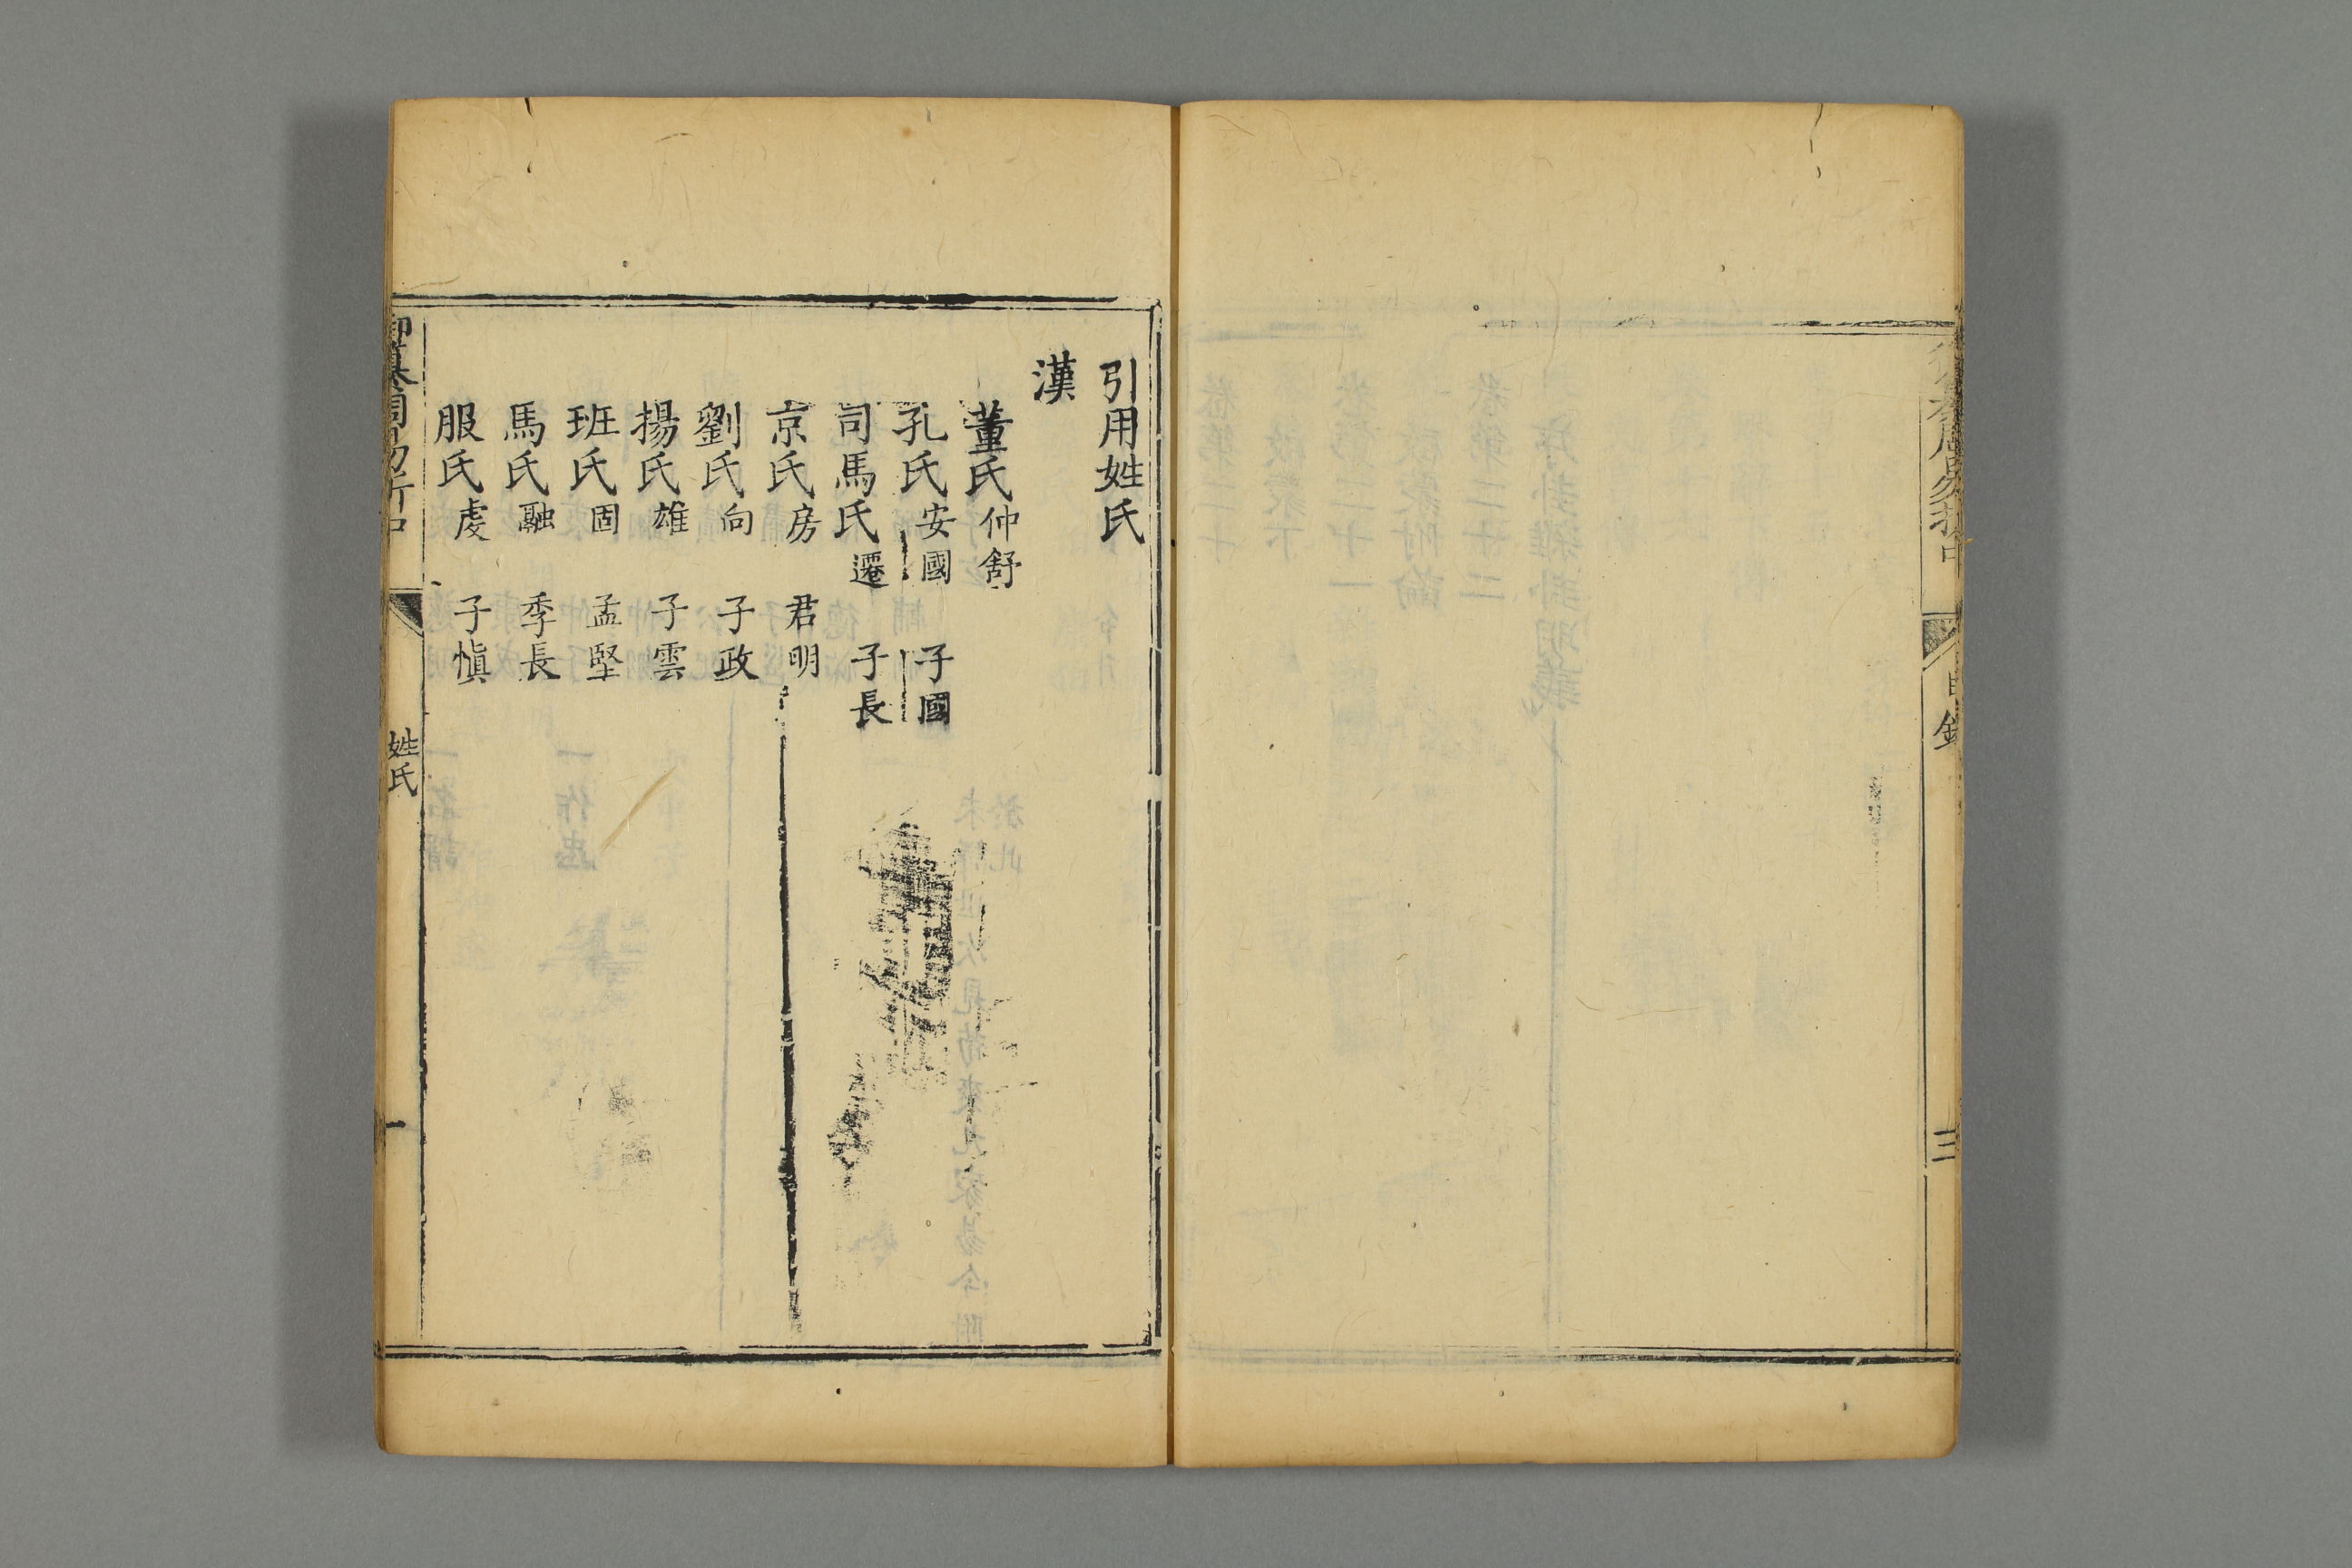 目錄
三
引用姓氏
漢
董氏仲舒
孔氏安國 子國
司馬氏遷 子長
京氏房 君明
劉氏向 子政
揚氏雄 子雲
班氏固 孟堅
馬氏融 季長
服氏虔 子慎
御纂周易折中
姓氏
一